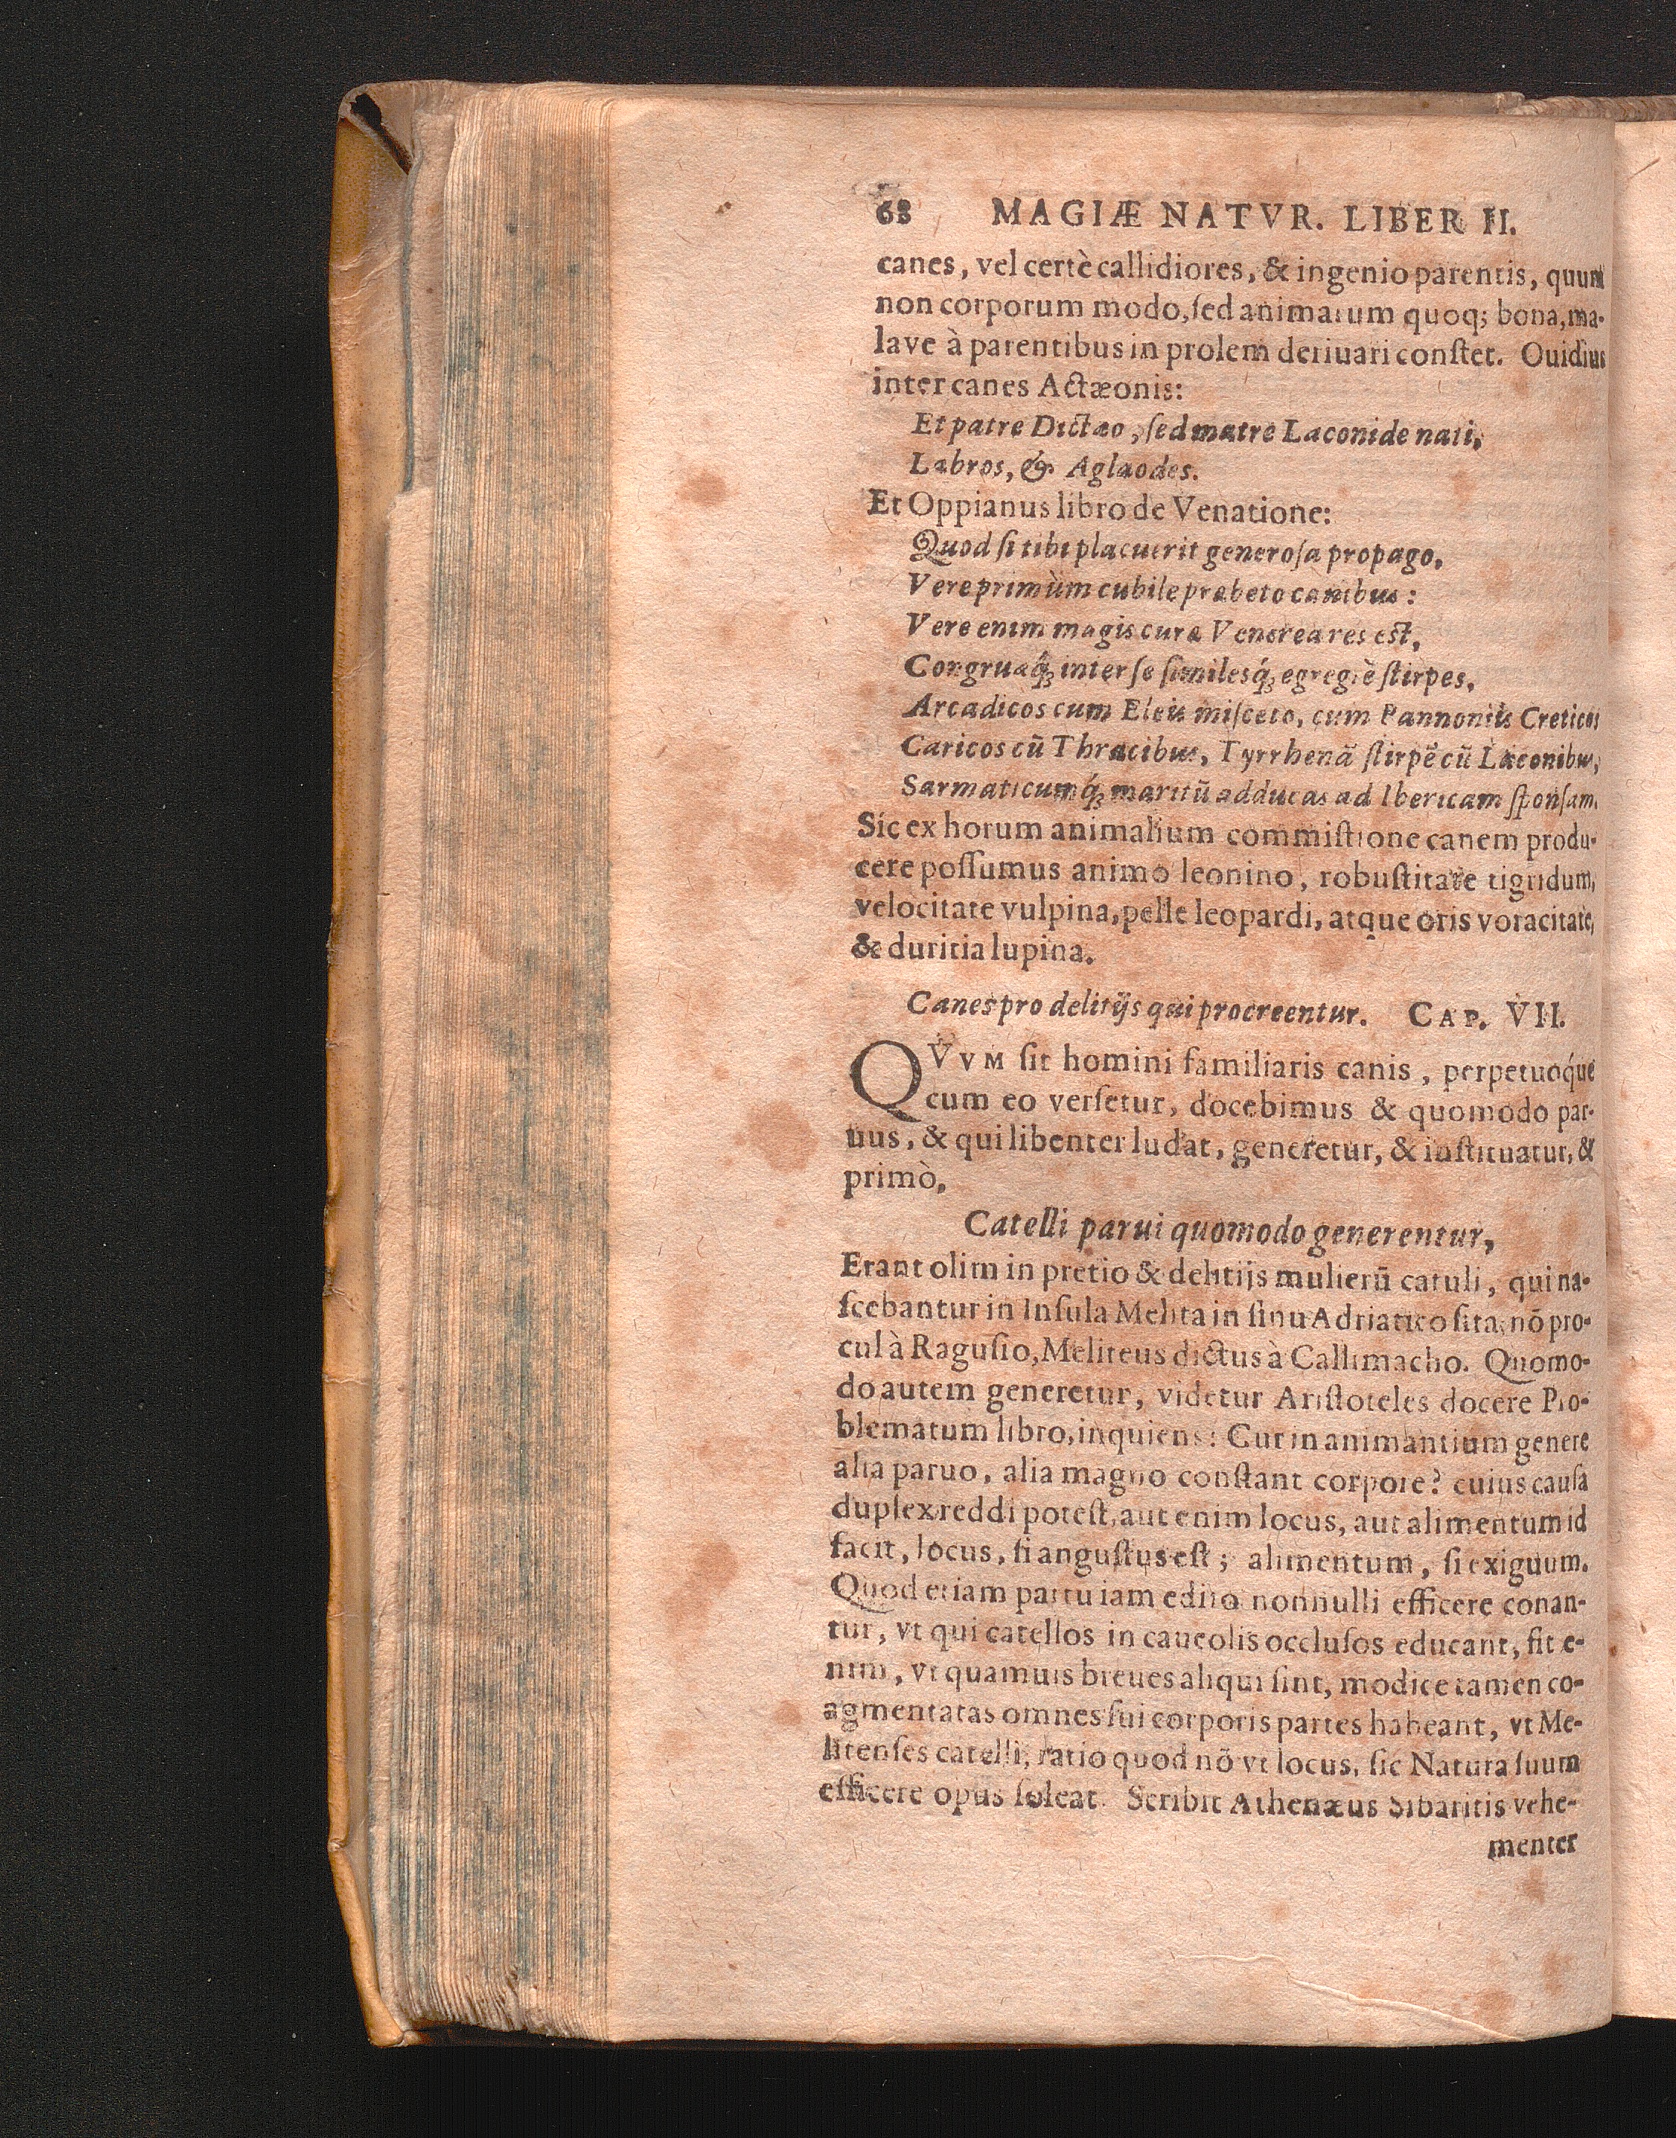 68 MAGIÆ NATVR. LIBER II.
canes, vel certè callidiores, & ingenio parentis, quum
non corporum modo, ſed animarum quoq; bona, ma-
lave à parentibus in prolem deriuari conſtet. Ouidius
inter canes Actæonis:
Et patre Dictæo, ſed matre Laconide nati,
Labros, & Aglaodes.
Et Oppianus libro de Venatione:
Quod ſi tibi placuerit generoſa propago,
Vere primùm cubile præbeto canibus:
Vere enim magis curæ Venerea res est,
Congruaq́; inter ſe ſimilesq́; egregiè ſtirpes,
Arcadicos cum Eleis miſceto, cum Pannoniis Creticos
Caricos cū Thracibus, Tyrrhenā ſtirpē cū Laconibus,
Sarmaticumq́; maritū adducas ad Ibericam ſponſam.
Sic ex horum animalium commiſtione canem produ-
cere poſſumus animo leonino, robuſtitate tigridum,
velocitate vulpina, pelle leopardi, atque oris voracitate,
& duritia lupina.
Canes pro delitijs qui procreentur. CAP. VII.
QVVM ſit homini familiaris canis, perpetuoq́ue
cum eo verſetur, docebimus & quomodo par-
uus, & qui libenter ludat, generetur, & inſtituatur, &
primò,
Catelli parui quomodo generentur,
Erant olim in pretio & delitijs mulierū catuli, qui na-
ſcebantur in Inſula Melita in ſinu Adriatico ſita, nō pro-
cul à Raguſio, Meliteus dictus à Callimacho. Quomo-
do autem generetur, videtur Ariſtoteles docere Pro-
blematum libro, inquiens: Cur in animantium genere
alia paruo, alia magno conſtant corpore? cuius cauſa
duplex reddi poteſt, aut enim locus, aut alimentum id
facit, locus, ſi anguſtus eſt; alimentum, ſi exiguum.
Quod etiam partu iam edito nonnulli efficere conan-
tur, vt qui catellos in caueolis occluſos educant, fit e-
nim, vt quamuis breues aliqui ſint, modice tamen co-
agmentatas omnes ſui corporis partes habeant, vt Me-
litenſes catelli, ratio quod nō vt locus, ſic Natura ſuum
efficere opus ſoleat. Scribit Athenæus Sibaritis vehe-
menter